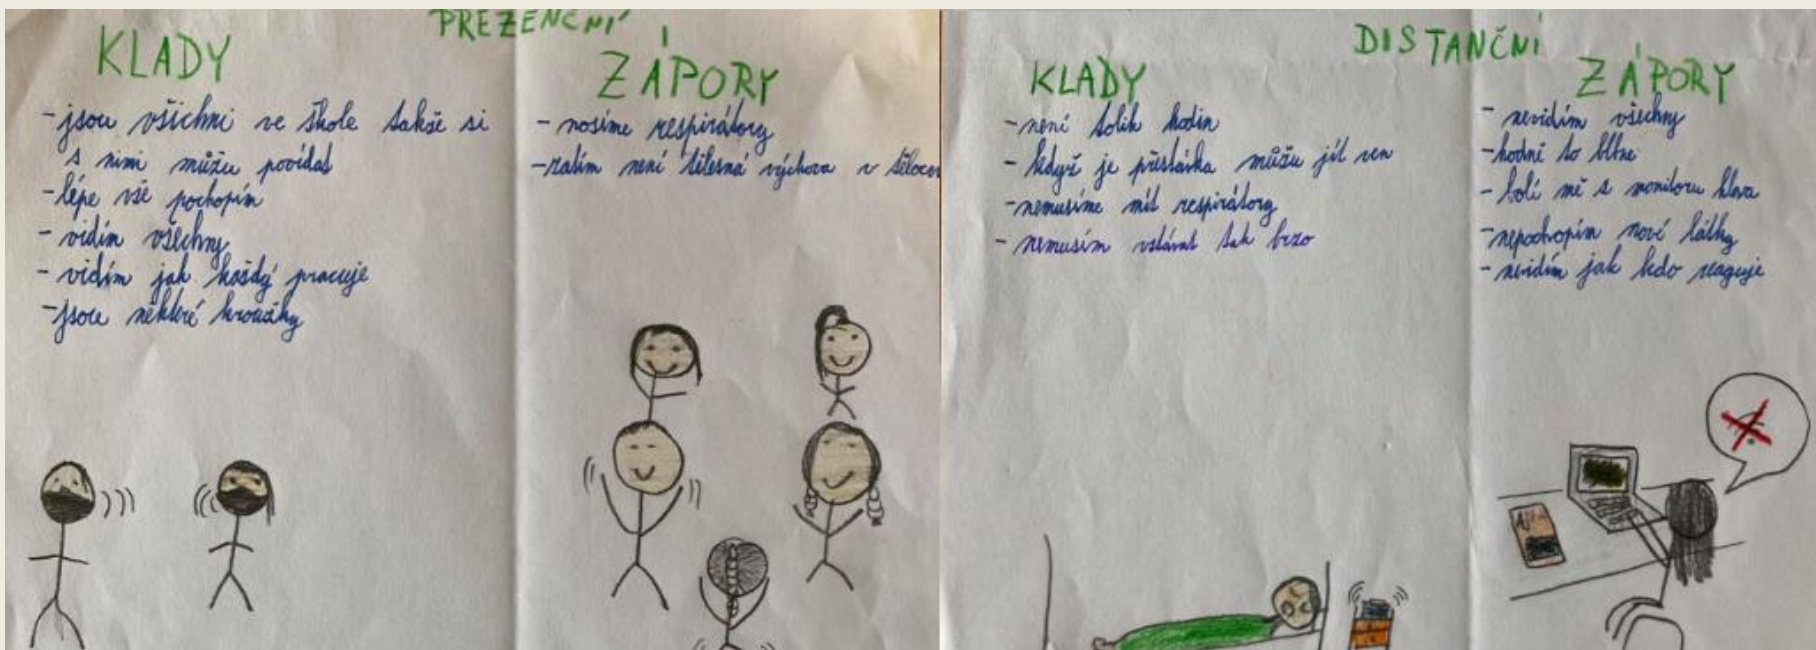 PREZENČNÍ
KLADY
- jsou všichni ve škole takže si
s nimi můžu povídat
- lépe vše pochopím
- vidím všechny
- vidím jak každý pracuje
- jsou některé kroužky
ZÁPORY
- nosíme respirátory
- zatím není tělesná výchova v
DISTANČNÍ
KLADY
- není tolik hodin
- když je přestávka můžu jít ven
- nemusíme mít respirátory
- nemusím vstávat tak brzo
ZÁPORY
- nevidím všechny
- hodně to
- bolí mě s monitoru hlava
- nepochopím nové látky
- nevidím jak kdo reaguje